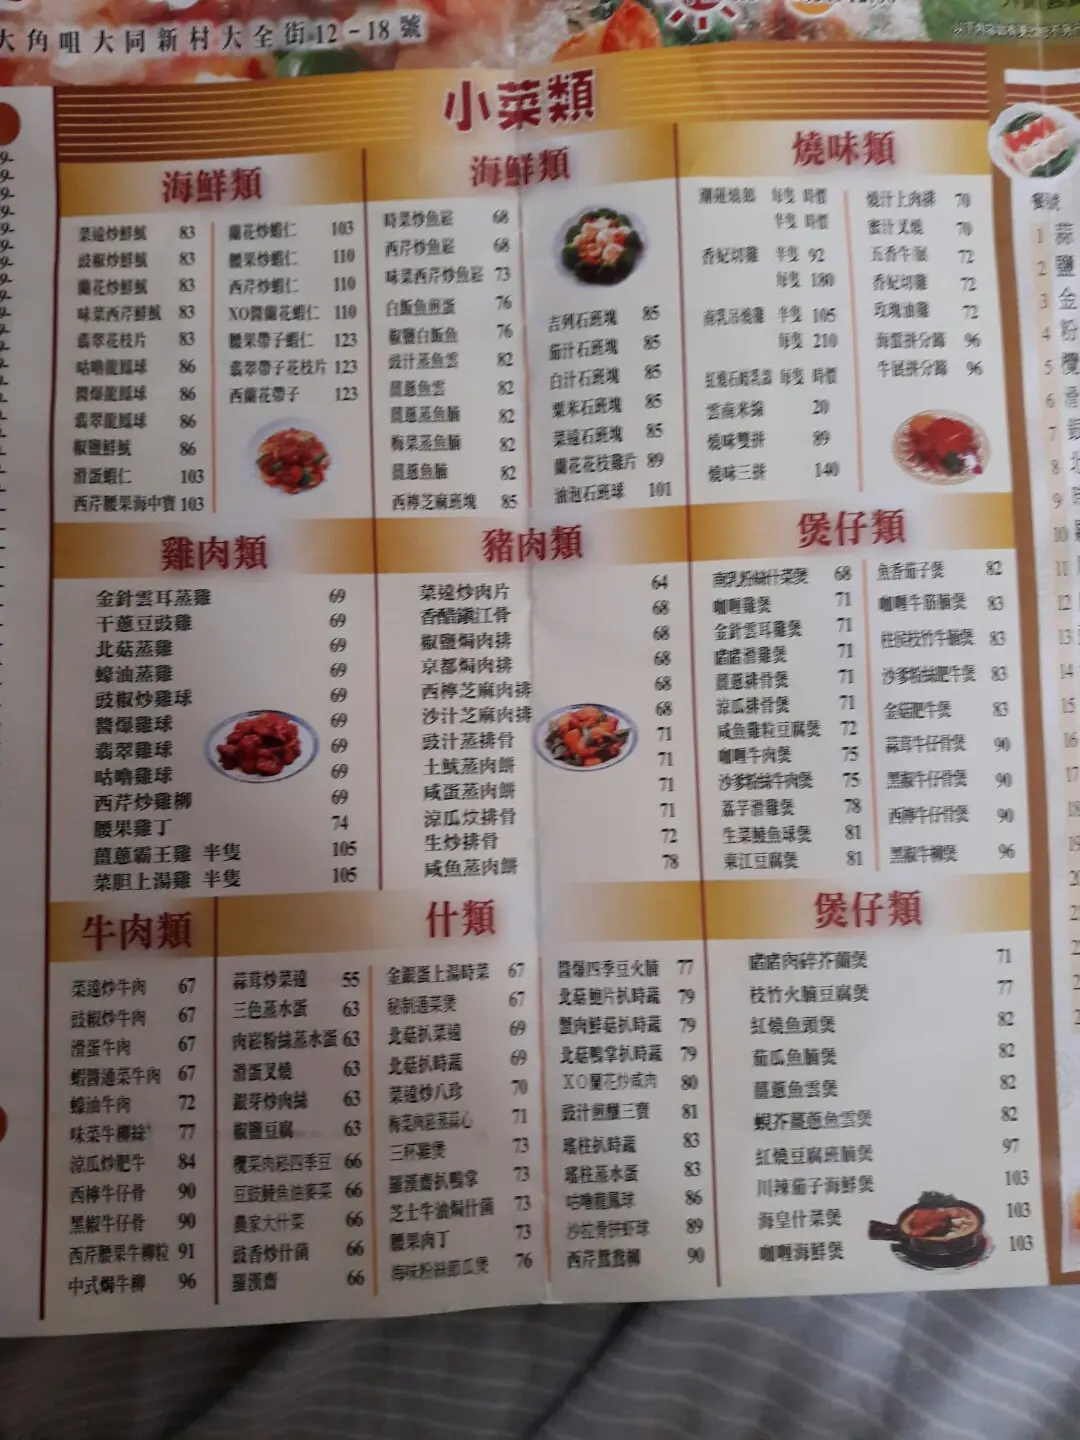 大角咀大同新村大全街12-18號
小菜類
海鮮類
菜遠炒鮮魷 83
豉椒炒鮮魷 83
蘭花炒鮮魷 83
味菜西芹鮮魷 83
翡翠花枝片 83
咕嚕龍鳳球 86
醬爆龍鳳球 86
翡翠龍鳳球 86
椒鹽鮮魷 86
滑蛋蝦仁 103
西芹腰果海中寶 103
蘭花炒蝦仁 103
腰果炒蝦仁 110
西芹炒蝦仁 110
XO醬蘭花蝦仁 110
腰果帶子蝦仁 123
翡翠帶子花枝片 123
西蘭花帶子 123
海鮮類
時菜炒魚崧 68
西芹炒魚崧 68
味菜西芹炒魚崧 73
白飯魚煎蛋 76
椒鹽白飯魚 76
豉汁蒸魚雲 82
薑蔥魚雲 82
薑蔥蒸魚腩 82
梅菜蒸魚腩 82
薑蔥魚腩 82
西檸芝麻班塊 85
吉列石班塊 85
茄汁石班塊 85
白汁石班塊 85
粟米石班塊 85
菜遠石班塊 85
蘭花花枝雞片 89
油泡石班球 101
燒味類
潮蓮燒鵝 每隻 時價
半隻 時價
香妃切雞 半隻 92
每隻 180
南乳吊燒雞 半隻 105
每隻 210
紅燒石岐乳鴿 每隻 時價
雲南米線 20
燒味雙拼 89
燒味三拼 140
燒汁上肉排 70
蜜汁叉燒 70
五香牛𦟌 72
香妃切雞 72
玫瑰油雞 72
海蜇拼分蹄 96
牛展拼分蹄 96
雞肉類
金針雲耳蒸雞 69
干蔥豆豉雞 69
北菇蒸雞 69
蠔油蒸雞 69
豉椒炒雞球 69
醬爆雞球 69
翡翠雞球 69
咕嚕雞球 69
西芹炒雞柳 69
腰果雞丁 74
薑蔥霸王雞 半隻 105
菜胆上湯雞 半隻 105
豬肉類
菜遠炒肉片 64
香醋鎮江骨 68
椒鹽焗肉排 68
京都焗肉排 68
西檸芝麻肉排 68
沙汁芝麻肉排 68
豉汁蒸排骨 71
土魷蒸肉餅 71
咸蛋蒸肉餅 71
涼瓜炆排骨 71
生炒排骨 72
咸魚蒸肉餅 78
煲仔類
南乳粉絲什菜煲 68
咖喱雞煲 71
金針雲耳雞煲 71
啫啫滑雞煲 71
薑蔥排骨煲 71
涼瓜排骨煲 71
咸魚雞粒豆腐煲 72
咖喱牛肉煲 75
沙爹粉絲牛肉煲 75
荔芋滑雞煲 78
生菜鯪魚球煲 81
東江豆腐煲 81
魚香茄子煲 82
咖喱牛筋腩煲 83
柱侯枝竹牛腩煲 83
沙爹粉絲肥牛煲 83
金菇肥牛煲 83
蒜茸牛仔骨煲 90
黑椒牛仔骨煲 90
西檸牛仔骨煲 90
黑椒牛柳煲 96
牛肉類
菜遠炒牛肉 67
豉椒炒牛肉 67
滑蛋牛肉 67
蝦醬通菜牛肉 67
蠔油牛肉 72
味菜牛柳絲 77
涼瓜炒肥牛 84
西檸牛仔骨 90
黑椒牛仔骨 90
西芹腰果牛柳粒 91
中式焗牛柳 96
什類
蒜茸炒菜遠 55
三色蒸水蛋 63
肉崧粉絲蒸水蛋 63
滑蛋叉燒 63
銀芽炒肉絲 63
椒鹽豆腐 63
欖菜肉崧四季豆 66
豆豉鯪魚油麥菜 66
農家大什菜 66
豉香炒什菌 66
羅漢齋 66
金銀蛋上湯時菜 67
秘制蓮菜煲 67
北菇扒菜遠 69
北菇扒時蔬 69
菜遠炒八珍 70
梅菜肉崧蒸菜心 71
三杯雞煲 73
羅漢齋扒鴨掌 73
芝士牛油焗什菌 73
腰果肉丁 73
海味粉絲節瓜煲 76
醬爆四季豆火腩 77
北菇鮑片扒時蔬 79
蟹肉鮮菇扒時蔬 79
北菇鴨掌扒時蔬 79
XO蘭花炒咸肉 80
豉汁煎釀三寶 81
瑤柱扒時蔬 83
瑤柱蒸水蛋 83
咕嚕龍鳳球 86
沙拉骨拼蝦球 89
西芹鴛鴦柳 90
煲仔類
啫啫肉碎芥蘭煲 71
枝竹火腩豆腐煲 77
紅燒魚頭煲 82
茄瓜魚腩煲 82
薑蔥魚雲煲 82
蜆芥薑蔥魚雲煲 82
紅燒豆腐班腩煲 97
川辣茄子海鮮煲 103
海皇什菜煲 103
咖喱海鮮煲 103
餐號
1 蒜
2 鹽
3 金
4 粉
5 欖
6 滑
7 銀
8 北
9
10
11
12
13
14
15
16
17
18
19